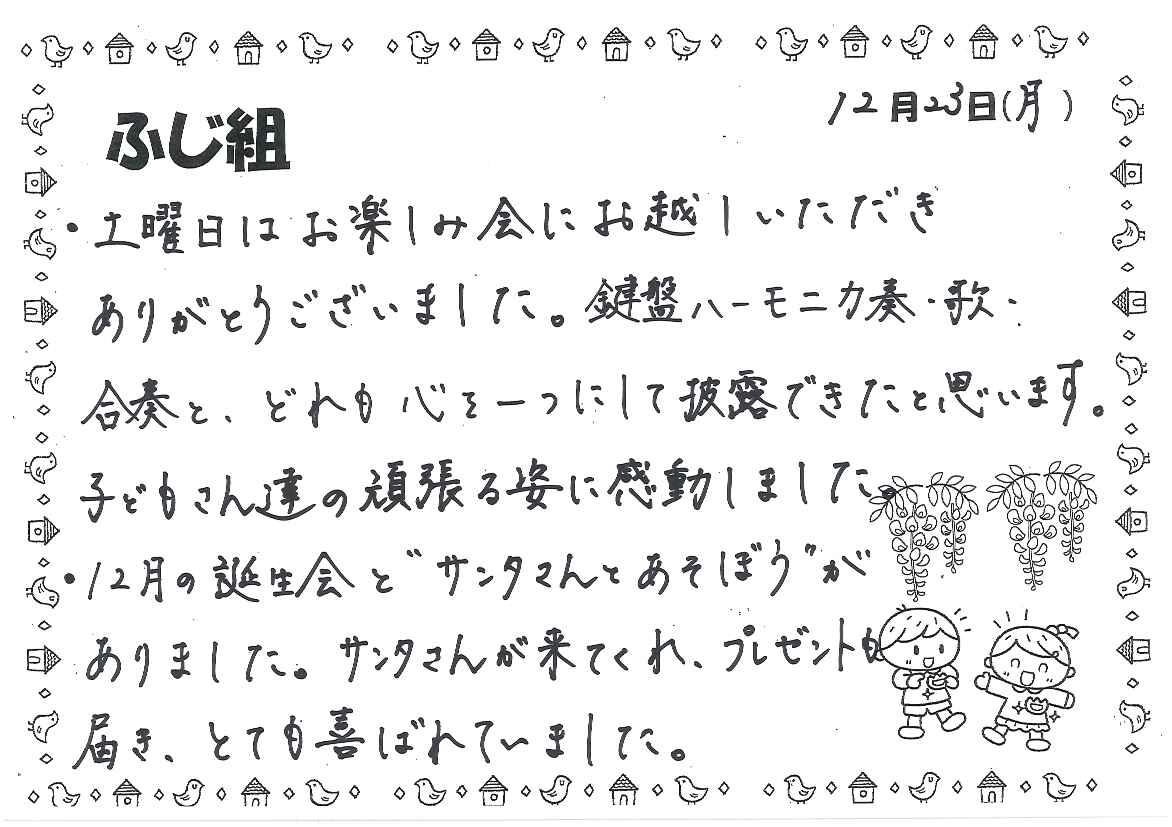 12月23日(月)
ふじ組
・土曜日はお楽しみ会にお越しいただき
ありがとうございました。鍵盤ハーモニカ奏・歌・
合奏と、どれも心を一つにして披露できたと思います。
子どもさん達の頑張る姿に感動しました。
・12月の誕生会と"サンタさんとあそぼう"が
ありました。サンタさんが来てくれ、プレゼントも
届き、とても喜ばれていました。